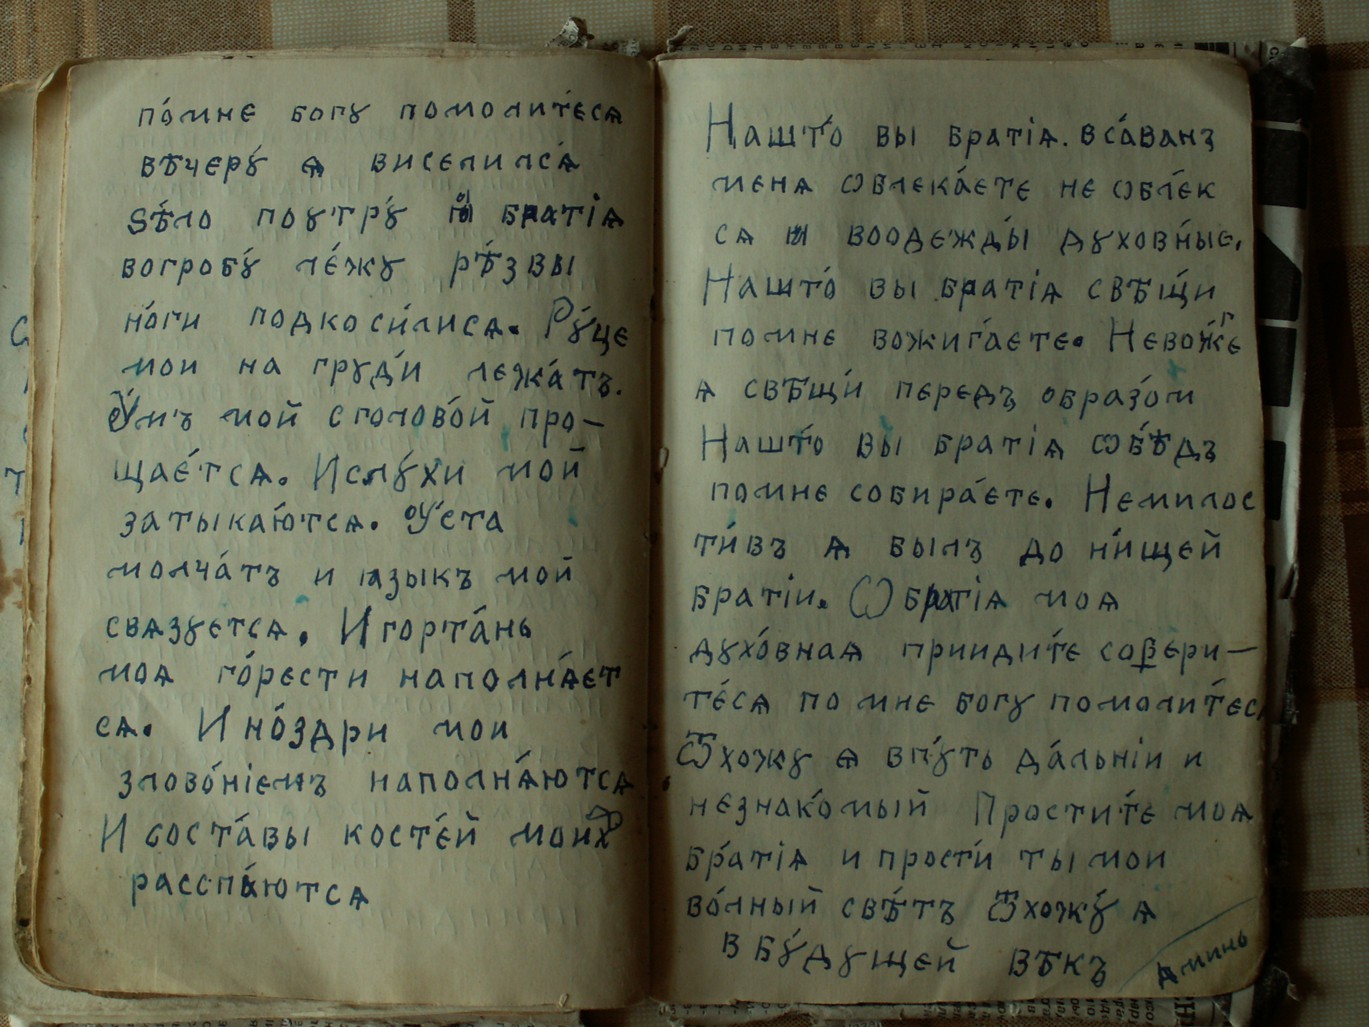 по́мне богу помоли́теся
вѣчеру́ ѧ висели́лсѧ
ѕѣ́ло поутру́ й братіѧ
вогробу́ ле́жу рѣ́звы
но́ги подкоси́лися. Ру́це
мои на груди́ лежа́тъ.
Ѹ́мъ мой сголово́й про-
щае́тсѧ. Ислу́хи мой
затыка́ютсѧ. Ѹ́ста
молча́тъ и ꙗзыкъ мой
свѧзуетсѧ. И горта́нь
моѧ го́рести наполнѧ́ет
сѧ. И но́здри мои
злово́ніемъ наполнѧ́ютсѧ
И соста́вы косте́й моих
расспа́ютсѧ
Нашто́ вы братіѧ. вса́ванъ
менѧ ѡвлека́ете не ѡбле́к
сѧ и воодежды́ духовны́е,
Нашто́ вы братіѧ свѣщи́
помне вожига́ете. Невож́ге
ѧ свѣщи́ передъ образо́м
Нашто́ вы братіѧ ѡбѣ́дъ
помне собира́ете. Немилос
ти́въ ѧ былъ до ни́щей
братіи. Ѡ братіѧ моѧ
духо́внаѧ приидите́ совери-
те́сѧ по мне богу помоли́тес
Ѿхожу ѧ впу́ть да́льніи и
незнако́мый Прости́те моѧ
бра́тіѧ и прости́ ты мои
во́лный свѣ́тъ Ѿхожу́ ѧ
в бу́дущей вѣкъ аминь